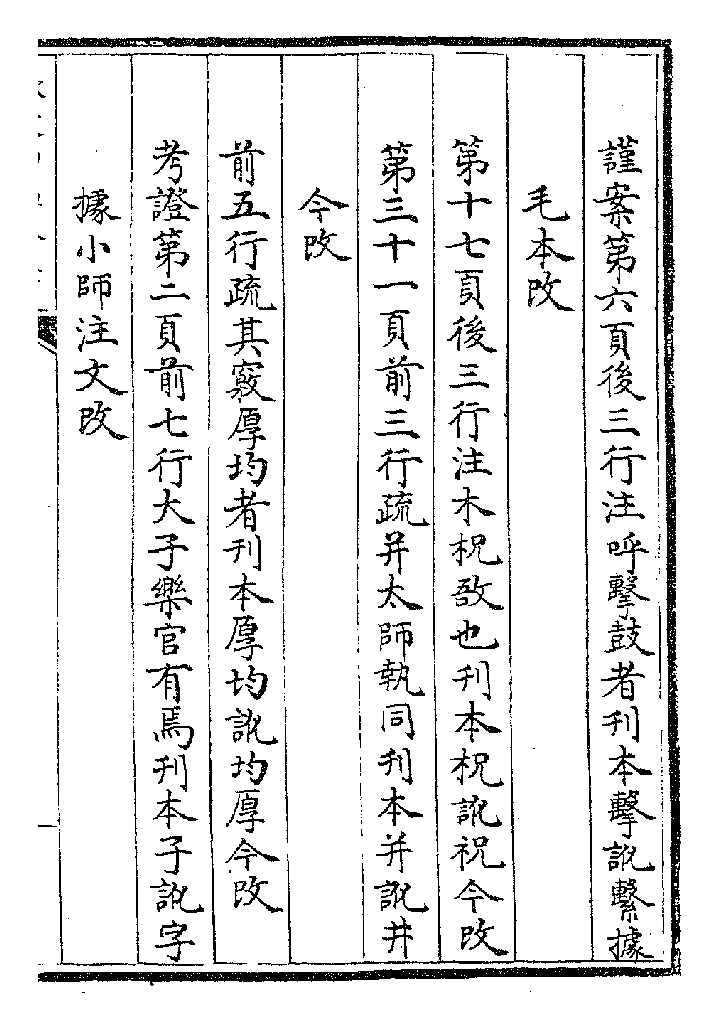 謹案第六頁後三行注呼擊鼓者刋本擊訛繫據
毛本改
第十七頁後三行注木柷敔也刋本柷訛祝今改
第三十一頁前三行疏并太師執同刋本并訛井
今改
前五行疏其竅厚均者刋本厚均訛均厚今改
考證第二頁前七行大子樂官有焉刋本子訛字
據小師注文改